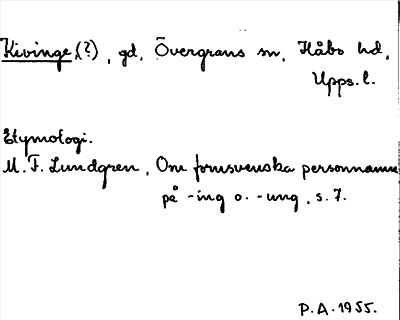 Kivinge(?), gd, Övergrans sn, Håbo hd,
Upps. l.
Etymologi.
M. F. Lundgren, Om fornsvenska personnamn
på -ing o. -ung, s. 7.
P.A. 1955.